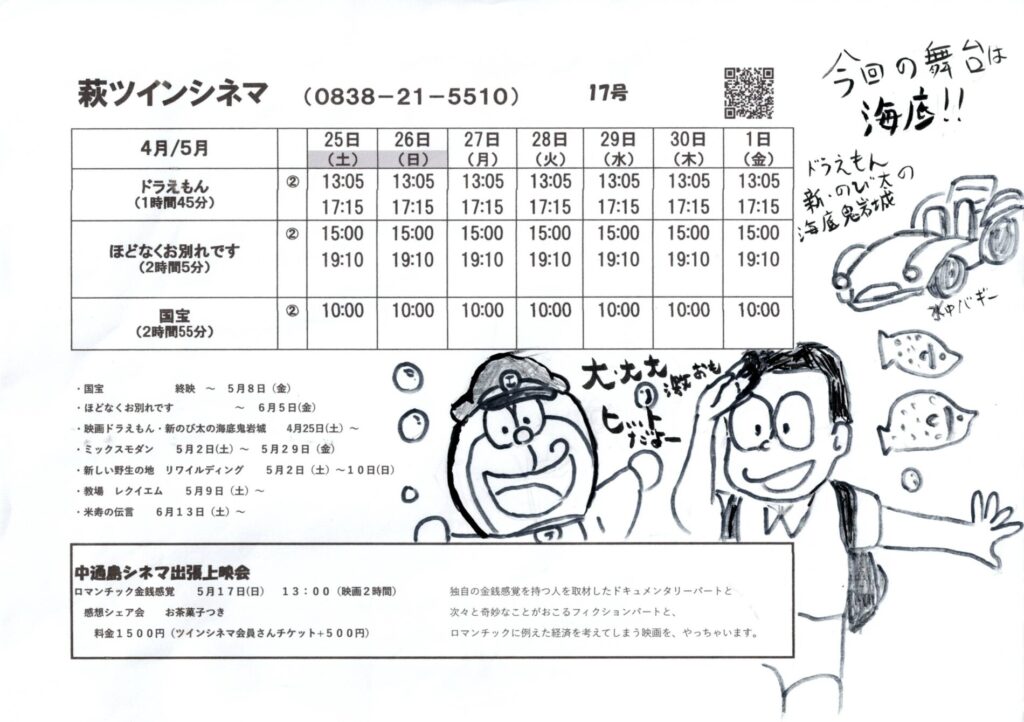 萩ツインシネマ （0838－21－5510） 17号
今回の舞台は
海底!!
ドラえもん
新・のび太の
海底鬼岩城
水中バギー
4月/5月 25日（土） 26日（日） 27日（月） 28日（火） 29日（水） 30日（木） 1日（金）
ドラえもん（1時間45分） ② 13:05 13:05 13:05 13:05 13:05 13:05 13:05
17:15 17:15 17:15 17:15 17:15 17:15 17:15
ほどなくお別れです（2時間5分） ② 15:00 15:00 15:00 15:00 15:00 15:00 15:00
19:10 19:10 19:10 19:10 19:10 19:10 19:10
国宝（2時間55分） ② 10:00 10:00 10:00 10:00 10:00 10:00 10:00
大・大大
ヒット
だよー
・国宝 終映 ～ 5月8日（金）
・ほどなくお別れです ～ 6月5日(金)
・映画ドラえもん・新のび太の海底鬼岩城 4月25日(土)～
・ミックスモダン 5月2日(土)～ 5月29日（金）
・新しい野生の地 リワイルディング 5月2日（土）～10日(日)
・教場 レクイエム 5月9日（土）～
・米寿の伝言 6月13日（土）～
中通島シネマ出張上映会
ロマンチック金銭感覚 5月17日(日) 13：00（映画2時間）
感想シェア会 お茶菓子つき
料金1500円（ツインシネマ会員さんチケット+500円）
独自の金銭感覚を持つ人を取材したドキュメンタリーパートと
次々と奇妙なことがおこるフィクションパートと、
ロマンチックに例えた経済を考えてしまう映画を、やっちゃいます。